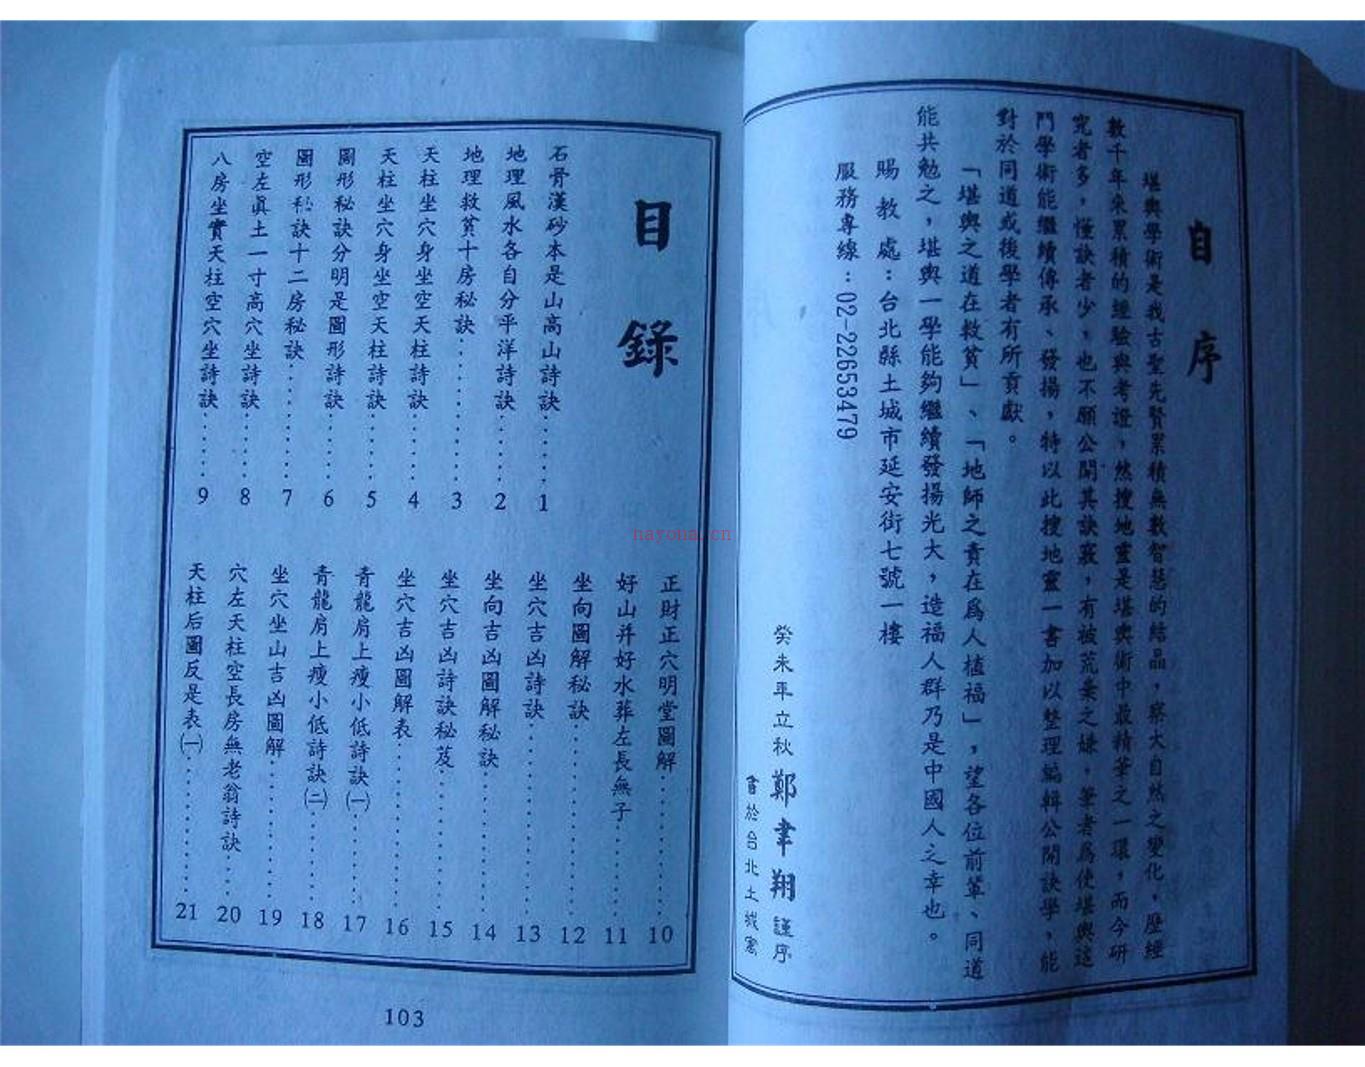 自序
堪輿學術是我古聖先賢累積無數智慧的結晶，察大自然之變化，歷經
數千年來累積的經驗與考證，然搜地靈是堪輿術中最精華之一環，而今研
究者多，懂訣者少，也不願公開其訣竅，有被荒棄之嫌，筆者為使堪輿這
門學術能繼續傳承、發揚，特以此搜地靈一書加以整理編輯公開訣學，能
對於同道或後學者有所貢獻。
「堪輿之道在救貧」、「地師之責在為人植福」，望各位前輩、同道
能共勉之，堪輿一學能夠繼續發揚光大，造福人群乃是中國人之幸也。
賜教處：台北縣土城市延安街七號一樓
服務專線：02-22653479
癸未年立秋 鄭聿翔 謹序
書於台北土城寓
目錄
石骨漢砂本是山高山詩訣………1
地理風水各自分平洋詩訣………2
地理救貧十房秘訣………3
天柱坐穴身坐空天柱詩訣………4
天柱坐穴身坐空天柱詩訣………5
圖形秘訣分明是圖形詩訣………6
圖形秘訣十二房秘訣………7
空左真土一寸高穴坐詩訣………8
八房坐實天柱空穴坐詩訣………9
正財正穴明堂圖解………10
好山并好水葬左長無子………11
坐向圖解秘訣………12
坐穴吉凶詩訣………13
坐向吉凶圖解秘訣………14
坐穴吉凶詩訣秘笈………15
坐穴吉凶圖解表………16
青龍肩上瘦小低詩訣㈠………17
青龍肩上瘦小低詩訣㈡………18
坐穴坐山吉凶圖解………19
穴左天柱空長房無老翁詩訣………20
天柱后圖反是表㈠………21
103
nayona.cn